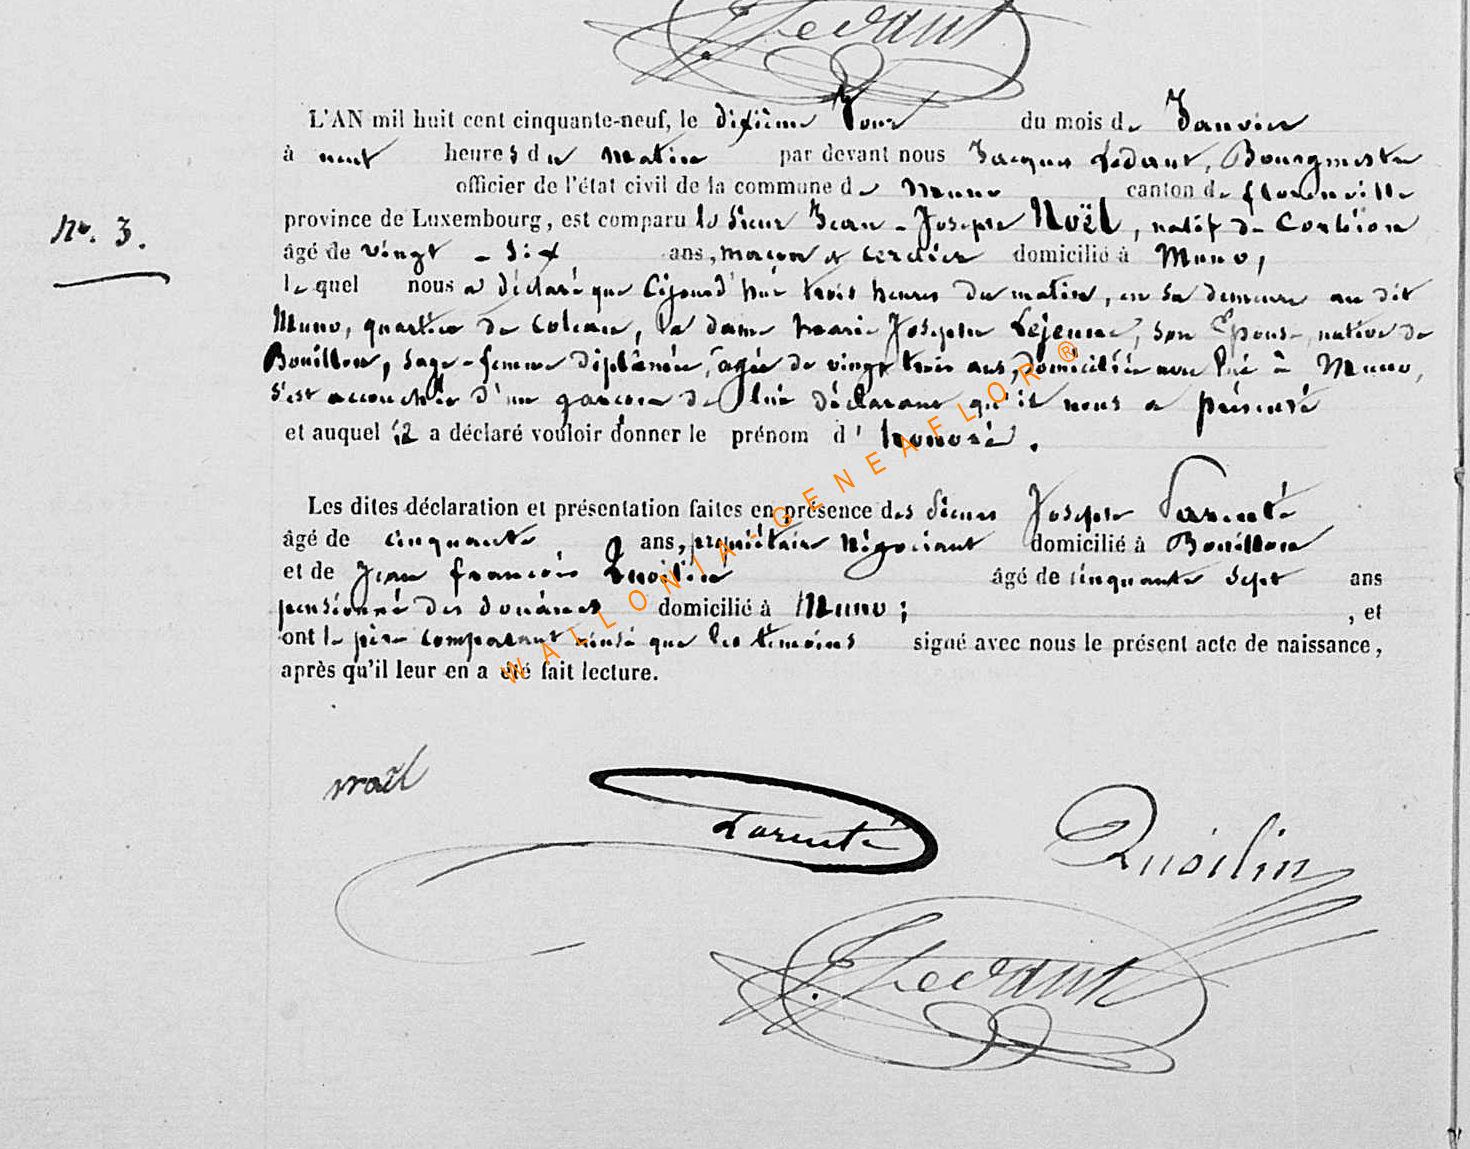 Ledant
L'AN mil huit cent cinquante-neuf, le dixième Jour du mois de Janvier
à neuf heures du matin par devant nous Jacques Ledant, Bourgmestre
officier de l'état civil de la commune de Muno canton de florenville
Nro. 3.
province de Luxembourg, est comparu le sieur Jean-Joseph Noël, natif de Corbion
âgé de vingt-six ans, maçon et cerclier domicilié à Muno,
lequel nous a déclaré que Cejourd'hui trois heures du matin, en sa demeure au dit
Muno, quartier de la dame marie Josephe Lejeune, son Epouse, native de
Bouillon, sage-femme diplômée, agée de vingt trois ans, domiciliée avec lui à Muno,
s'est accouchée d'un garçon de lui déclarant qu'il nous a présenté
et auquel il a déclaré vouloir donner le prénom d'honoré.
Les dites déclaration et présentation faites en présence des Sieurs Joseph Parenté
âgé de cinquante ans, propriétaire Négociant domicilié à Bouillon
et de Jean françois Quoilin âgé de cinquante sept ans
pensionné des douanes domicilié à Muno; , et
ont le père comparant ainsi que les témoins signé avec nous le présent acte de naissance,
après qu'il leur en a été fait lecture.
WALLONIA-GENEAFLOR®
noël
Parenté
Quoilin
Ledant